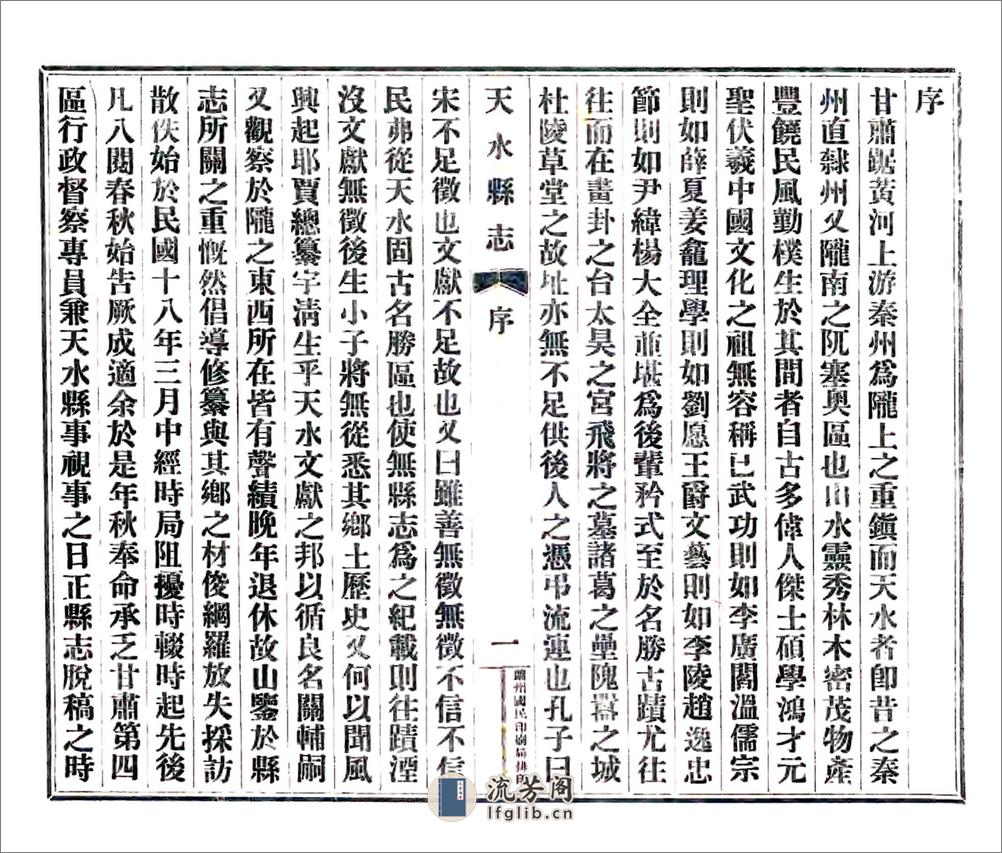 序
甘肅踞黃河上游秦州爲隴上之重鎭而天水者卽昔之秦
州直隸州又隴南之阨塞奧區也山水靈秀林木密茂物產
豐饒民風勤樸生於其間者自古多偉人傑士碩學鴻才元
聖伏羲中國文化之祖無容稱已武功則如李廣閻溫儒宗
則如薛夏姜龕理學則如劉愿王爵文藝則如李陵趙逸忠
節則如尹緯楊大全並堪爲後輩矜式至於名勝古蹟尤往
往而在畫卦之台太昊之宮飛將之墓諸葛之壘隗囂之城
杜陵草堂之故址亦無不足供後人之憑弔流連也孔子曰
天水縣志 序 一 蘭州國民印刷局排印
宋不足徵也文獻不足故也又曰雖善無徵無徵不信不信
民弗從天水固古名勝區也使無縣志爲之紀載則往蹟湮
沒文獻無徵後生小子將無從悉其鄉土歷史又何以聞風
興起耶賈總纂字淸生乎天水文獻之邦以循良名關輔嗣
又觀察於隴之東西所在皆有聲績晚年退休故山鑒於縣
志所關之重慨然倡導修纂與其鄉之材俊網羅放失採訪
散佚始於民國十八年三月中經時局阻擾時輟時起先後
凡八閱春秋始告厥成適余於是年秋奉命承乏甘肅第四
區行政督察專員兼天水縣事視事之日正縣志脫稿之時
流芳閣
lfglib.cn